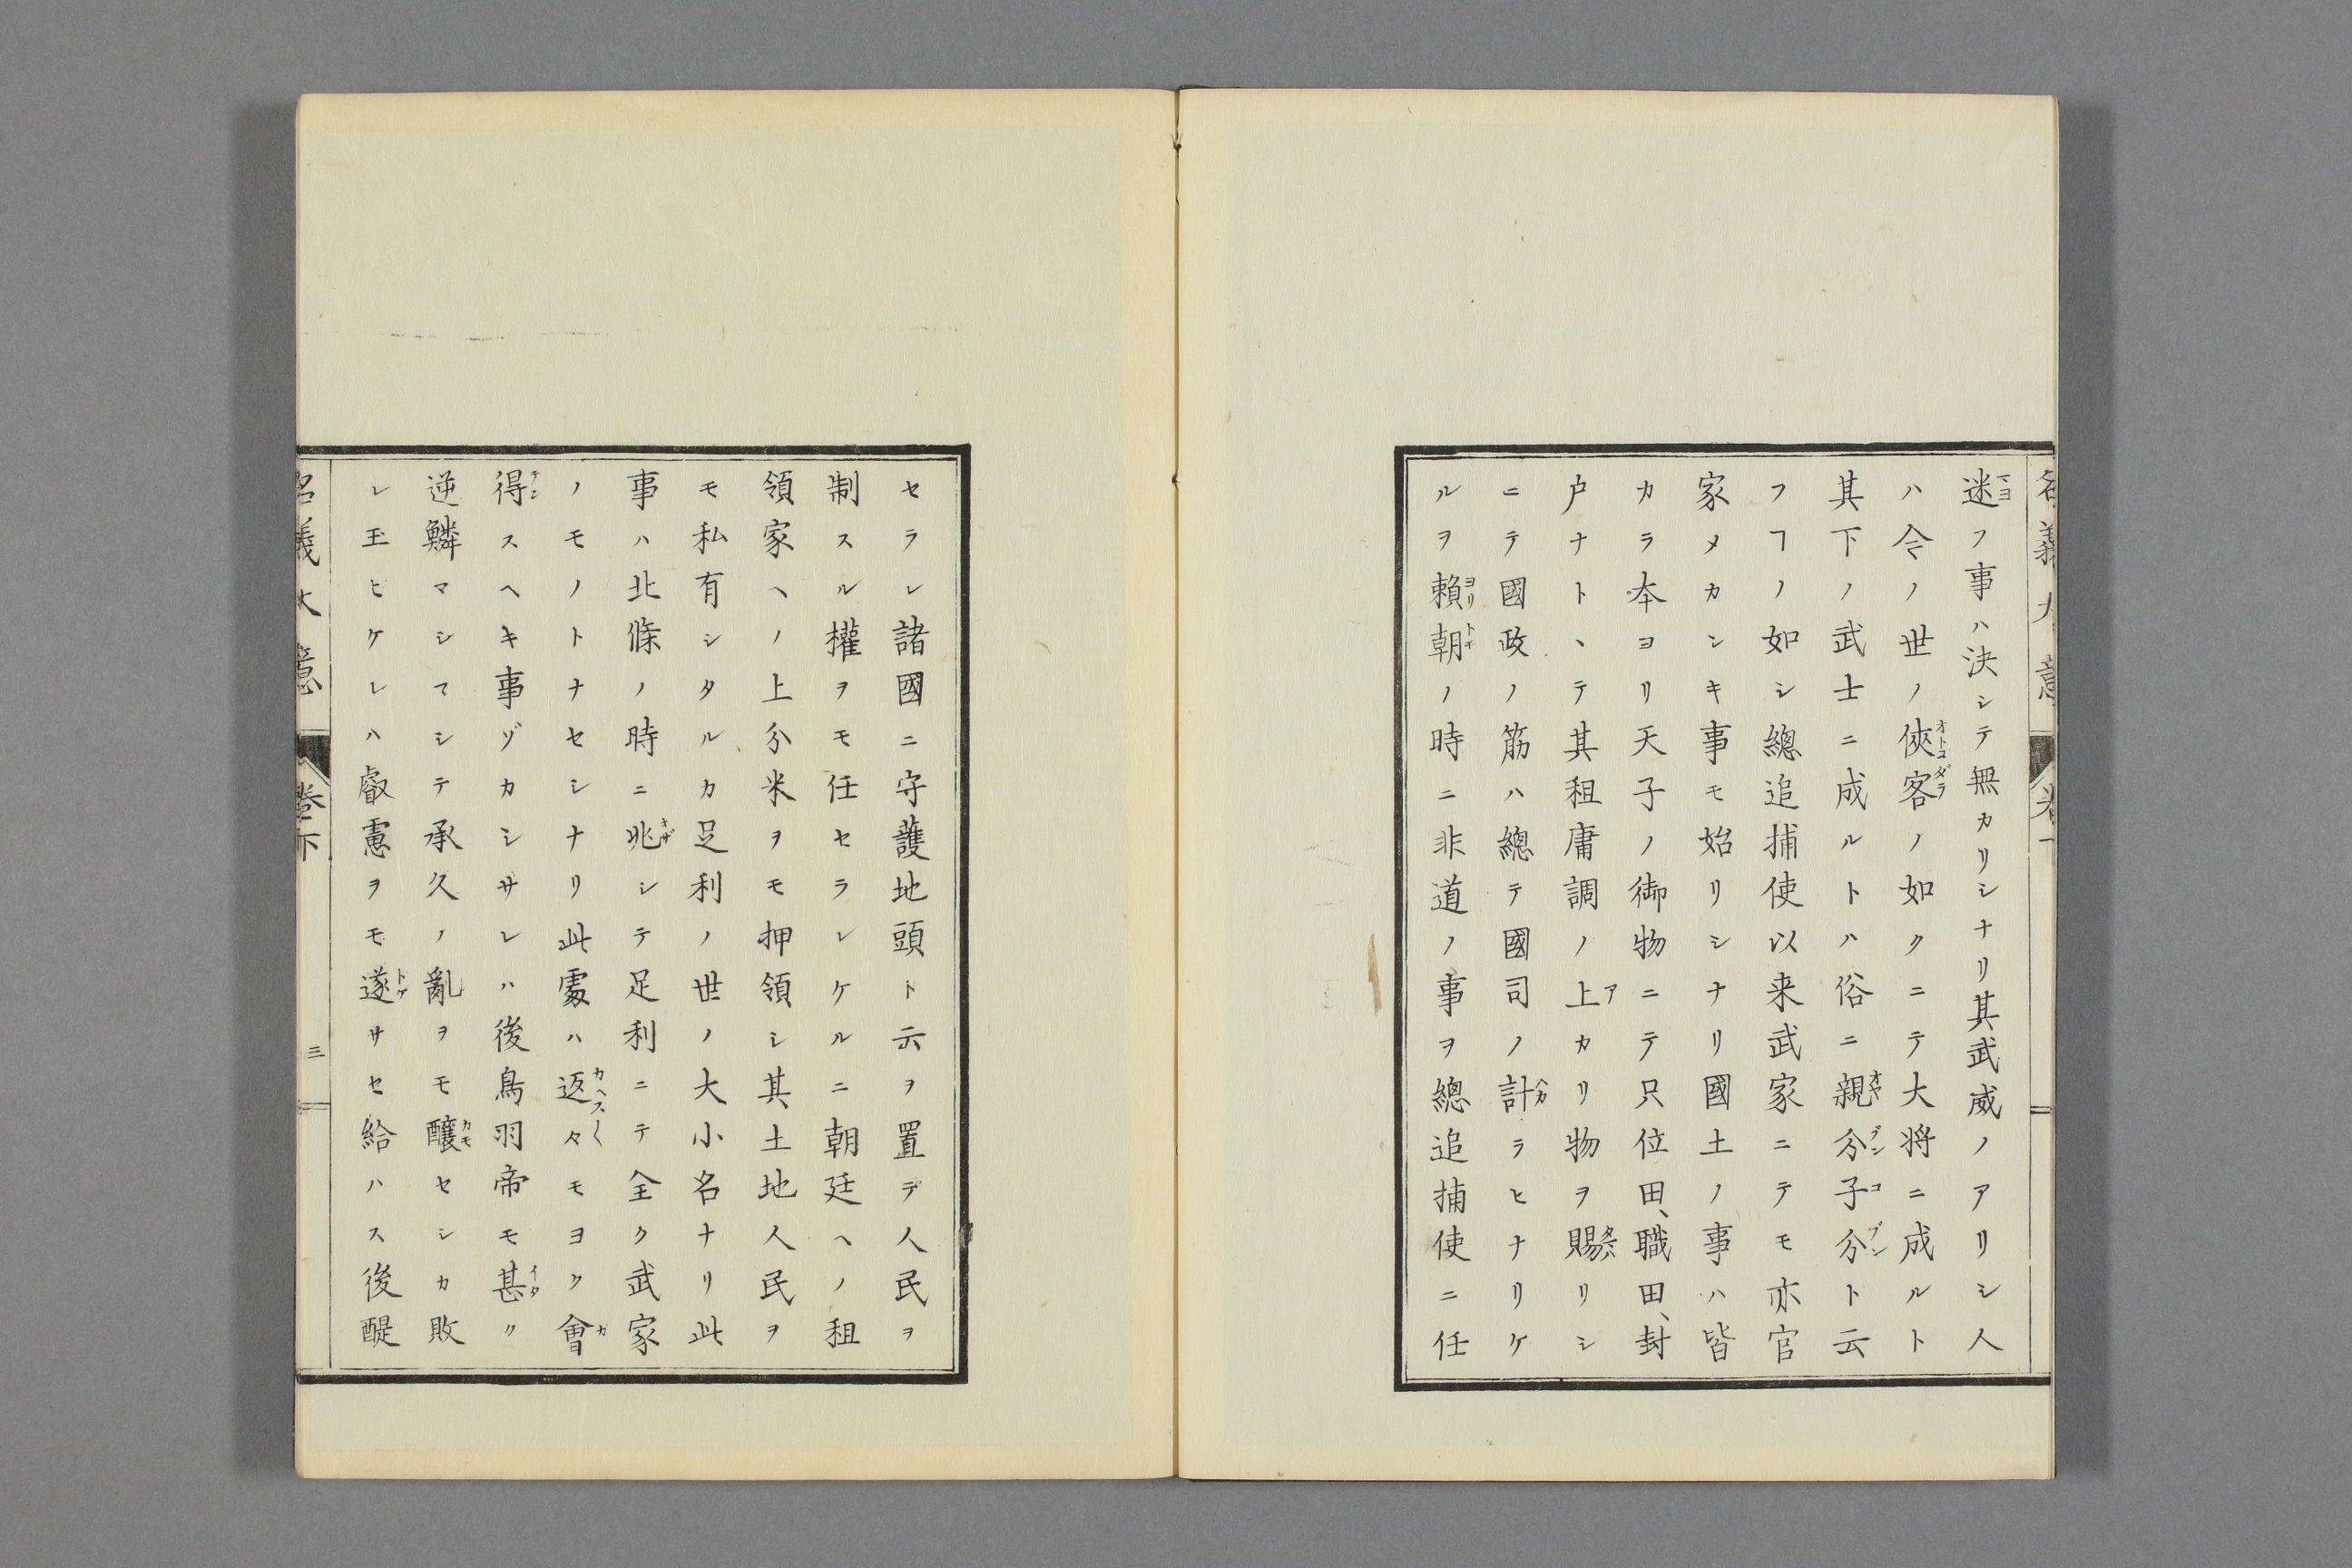 迷フ事ハ決シテ無カリシナリ其武威ノアリシ人
ハ今ノ世ノ俠客ノ如クニテ大将ニ成ルト
其下ノ武士ニ成ルトハ俗ニ親分子分ト云
フヿノ如シ總追捕使以来武家ニテモ亦官
家メカシキ事モ始リシナリ國土ノ事ハ皆
カラ本ヨリ天子ノ御物ニテ只位田、職田、封
戸ナト、テ其租庸調ノ上カリ物ヲ賜リシ
ニテ國政ノ筋ハ總テ國司ノ計ラヒナリケ
ルヲ賴朝ノ時ニ非道ノ事ヲ總追捕使ニ任
セラレ諸國ニ守護地頭ト云ヲ置テ人民ヲ
制スル權ヲモ任セラレケルニ朝廷ヘノ租
領家ヘノ上分米ヲモ押領シ其土地人民ヲ
モ私有シタルカ足利ノ世ノ大小名ナリ此
事ハ北條ノ時ニ兆シテ足利ニテ全ク武家
ノモノトナセシナリ此處ハ返々モヨク會
得スヘキ事ゾカシサレハ後鳥羽帝モ甚ク
逆鱗マシマシテ承久ノ亂ヲモ釀セシカ敗
レ玉ヒケレハ叡慮ヲモ遂サセ給ハス後醍
名義大意
卷下
三